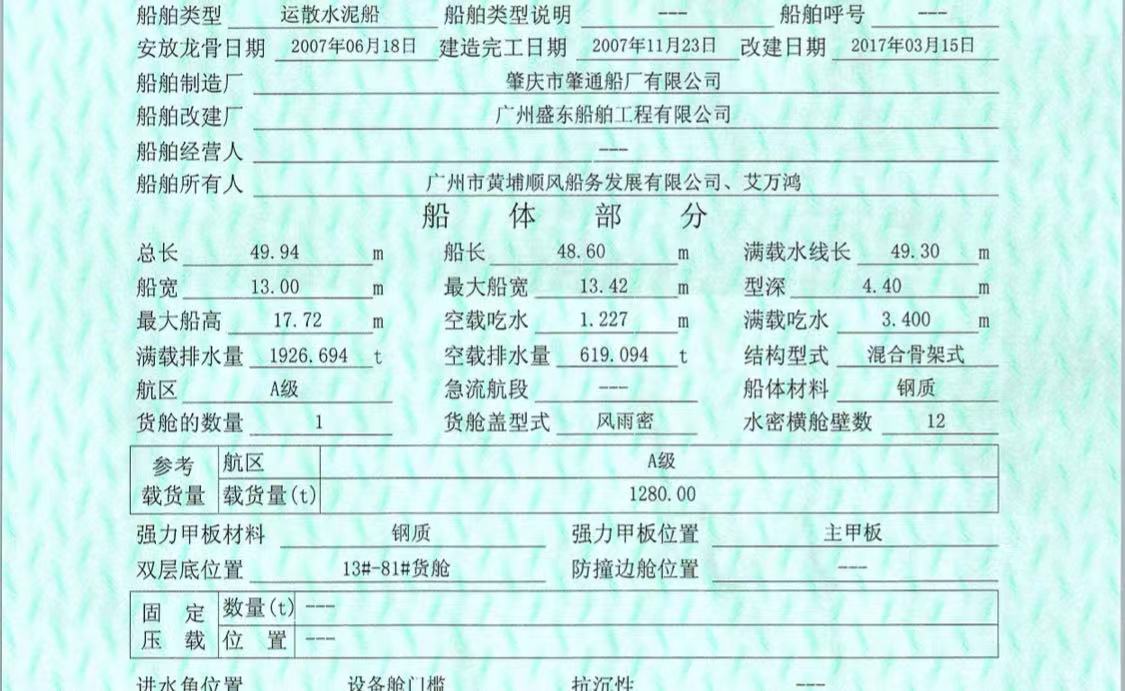 船舶类型 运散水泥船 船舶类型说明 --- 船舶呼号 ---
安放龙骨日期 2007年06月18日 建造完工日期 2007年11月23日 改建日期 2017年03月15日
船舶制造厂 肇庆市肇通船厂有限公司
船舶改建厂 广州盛东船舶工程有限公司
船舶经营人 ---
船舶所有人 广州市黄埔顺风船务发展有限公司、艾万鸿
船 体 部 分
总长 49.94 m 船长 48.60 m 满载水线长 49.30 m
船宽 13.00 m 最大船宽 13.42 m 型深 4.40 m
最大船高 17.72 m 空载吃水 1.227 m 满载吃水 3.400 m
满载排水量 1926.694 t 空载排水量 619.094 t 结构型式 混合骨架式
航区 A级 急流航段 --- 船体材料 钢质
货舱的数量 1 货舱盖型式 风雨密 水密横舱壁数 12
参考 航区 A级
载货量 载货量(t) 1280.00
强力甲板材料 钢质 强力甲板位置 主甲板
双层底位置 13#-81#货舱 防撞边舱位置 ---
固 定 数量(t) ---
压 载 位 置 ---
进水角位置 设备舱门槛 抗沉性 ---